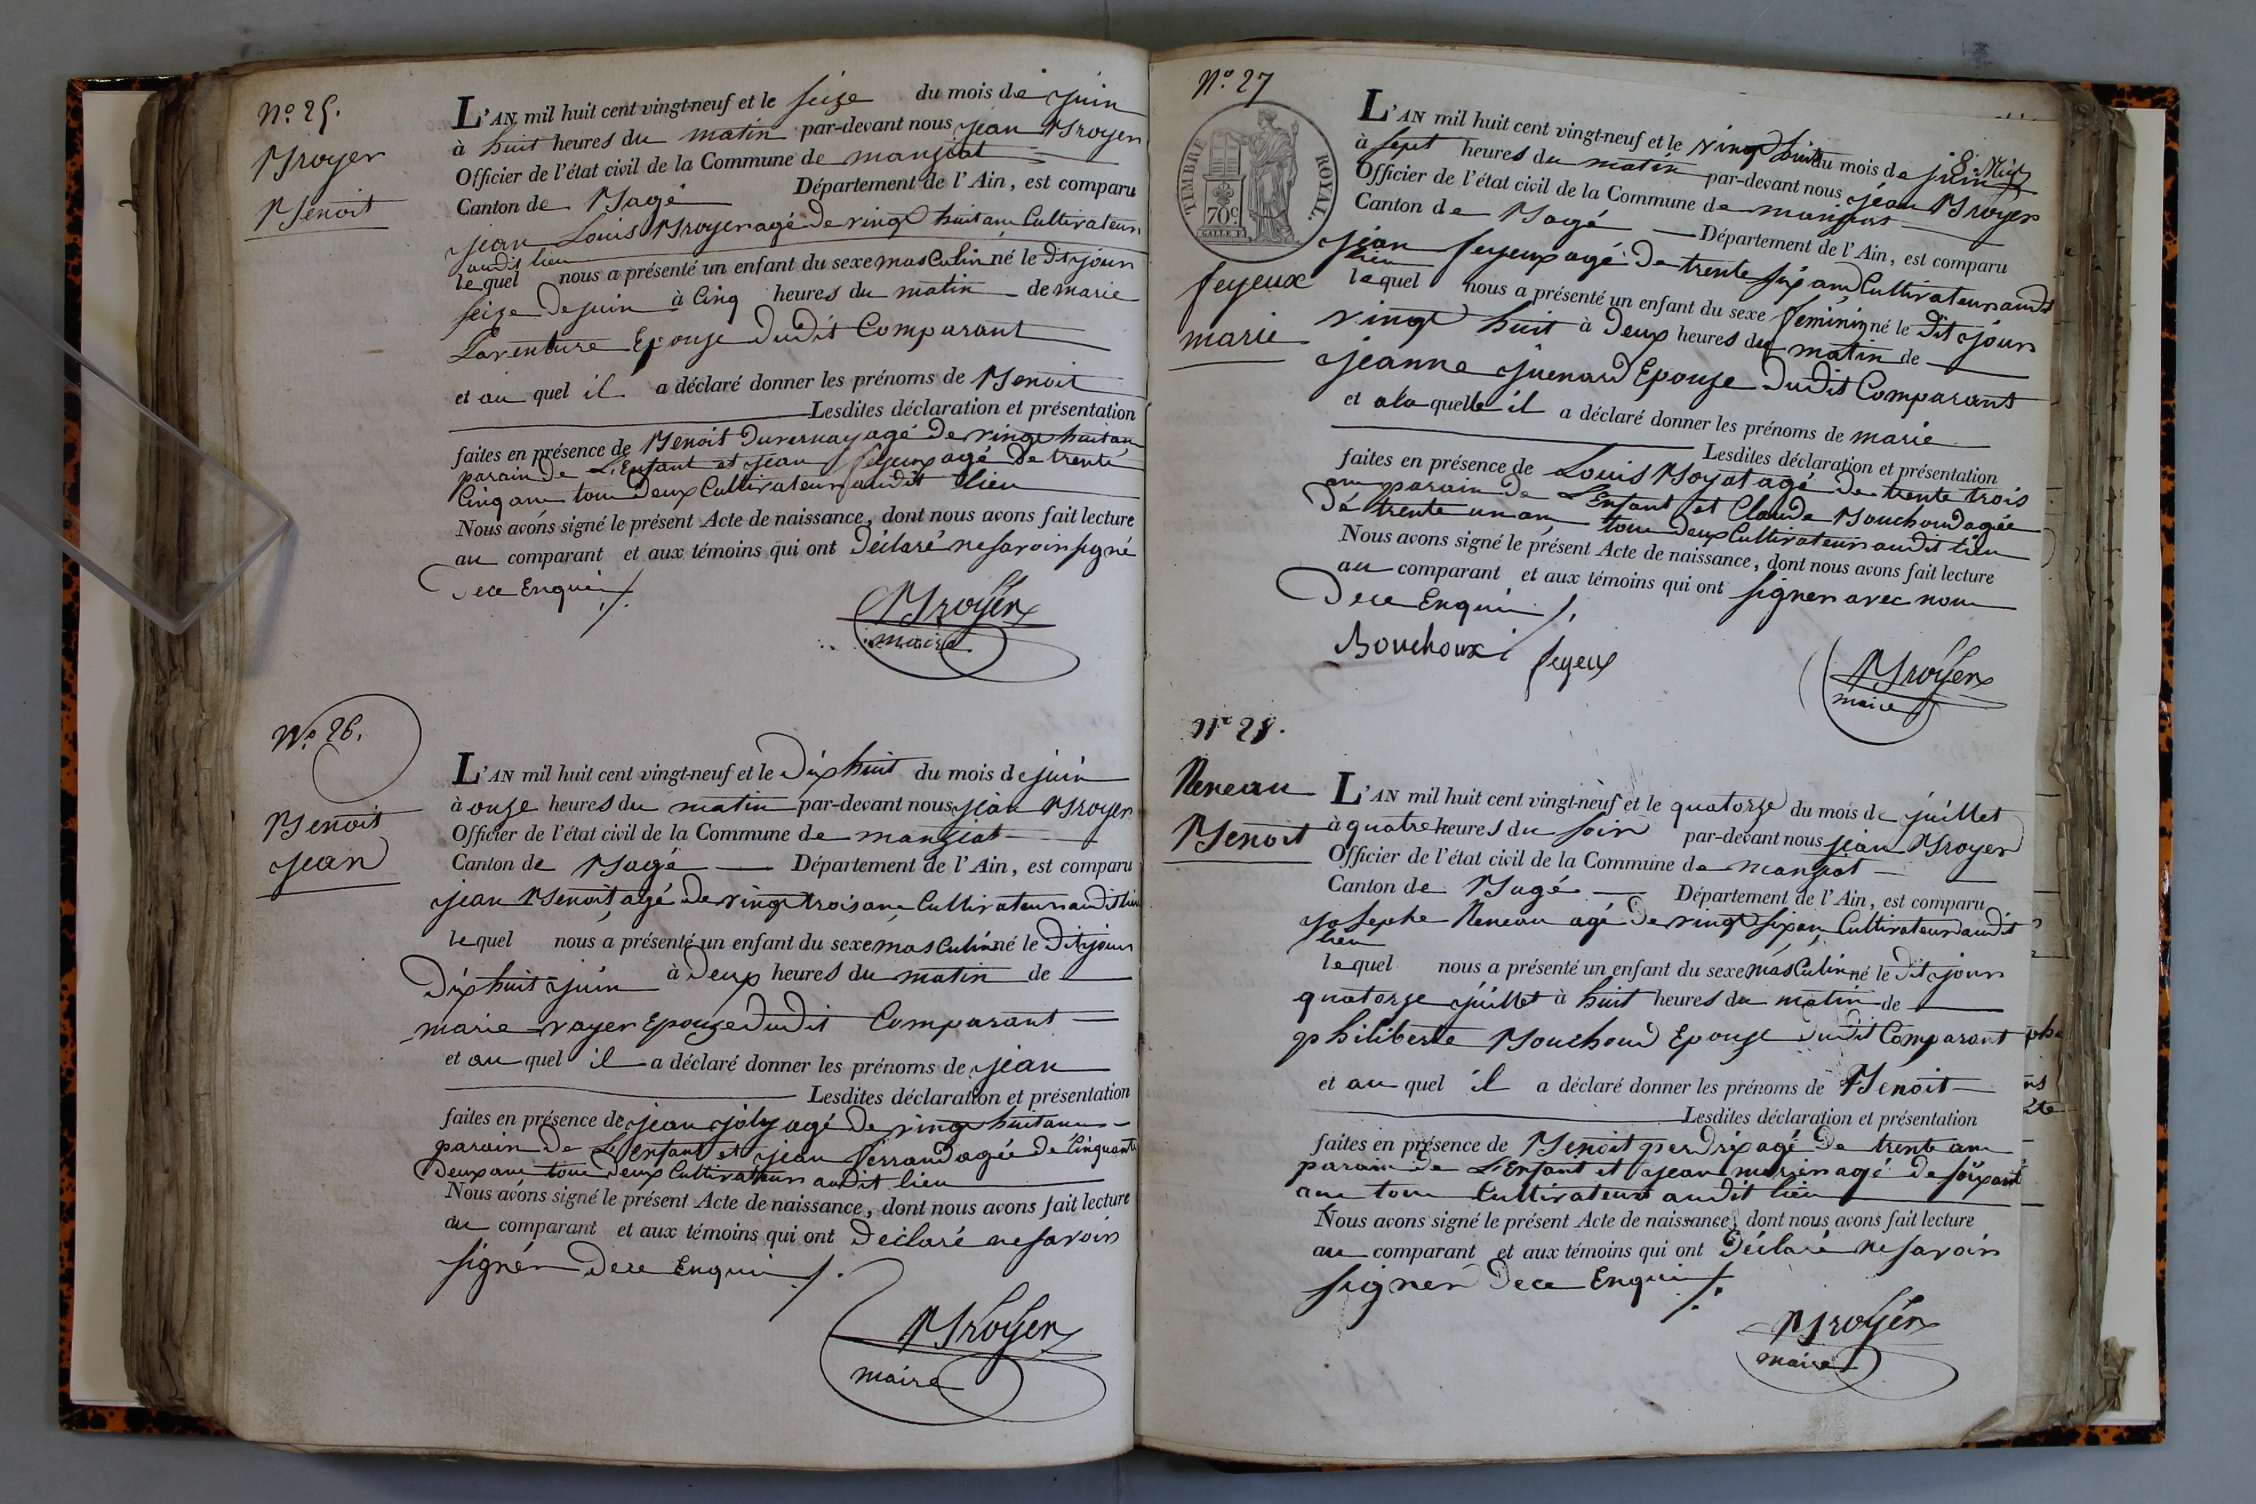 N.o 25.
Broyer
Benoit
L'AN mil huit cent vingt-neuf et le seize du mois de juin
à huit heures du matin par-devant nous jean Broyer
Officier de l'état civil de la Commune de manziat
Canton de Bagé Département de l'Ain, est comparu
jean Louis Broyer agé de vingt huit ans Cultivateur
audit lieu
lequel nous a présenté un enfant du sexe masculin né le dit jour
seize de juin à Cinq heures du matin de marie
Laventure Epouse dudit Comparant
et au quel il a déclaré donner les prénoms de Benoit
Lesdites déclaration et présentation
faites en présence de Benoit Duvernay agé de vingt huit ans
parain de L'Enfant et jean feyeux agé de trente
Cinq ans tous deux Cultivateurs audit lieu
Nous avons signé le présent Acte de naissance, dont nous avons fait lecture
au comparant et aux témoins qui ont déclaré ne savoir signé
de ce Enquis ./.
Broyer
maire
N.o 26.
Benoit
jean
L'AN mil huit cent vingt-neuf et le dix huit du mois de juin
à onze heures du matin par-devant nous jean Broyer
Officier de l'état civil de la Commune de manziat
Canton de Bagé Département de l'Ain, est comparu
jean Benoit agé de vingt trois ans Cultivateur audit lieu
lequel nous a présenté un enfant du sexe masculin né le dit jour
dix huit juin à deux heures du matin de
marie rayer Epouse dudit Comparant
et au quel il a déclaré donner les prénoms de jean
Lesdites déclaration et présentation
faites en présence de jean joly agé de vingt huit ans
parain de L'enfant et jean ferrand agée de Cinquante
deux ans tous deux Cultivateurs audit lieu
Nous avons signé le présent Acte de naissance, dont nous avons fait lecture
au comparant et aux témoins qui ont déclaré ne savoir
signér de ce Enquis ./.
Broyer
maire
N.o 27
TIMBRE ROYAL.
70c
feyeux
marie
L'AN mil huit cent vingt-neuf et le vingt huit du mois de juin
à sept heures du matin par-devant nous jean Broyer
Officier de l'état civil de la Commune de manziat
Canton de Bagé Département de l'Ain, est comparu
jean feyeux agé de trente six ans Cultivateur audit
lieu
lequel nous a présenté un enfant du sexe feminin né le dit jour
vingt huit à deux heures du matin de
jeanne guenard Epouse dudit Comparant
et a la quelle il a déclaré donner les prénoms de marie
Lesdites déclaration et présentation
faites en présence de Louis Boyat agé de trente trois
ans parain de L'Enfant et Claude Bouchoud agée
de trente un ans tous deux Cultivateurs audit lieu
Nous avons signé le présent Acte de naissance, dont nous avons fait lecture
au comparant et aux témoins qui ont signer avec nous
de ce Enquis ./.
Bouchoux feyeux
Broyer
maire
N.o 28.
Reneau
Benoit
L'AN mil huit cent vingt-neuf et le quatorze du mois de juillet
à quatre heures du soir par-devant nous jean Broyer
Officier de l'état civil de la Commune de manziat
Canton de Bagé Département de l'Ain, est comparu
josephe Reneau agé de vingt six ans Cultivateur audit
lieu
lequel nous a présenté un enfant du sexe masculin né le dit jour
quatorze juillet à huit heures du matin de
philiberte Bouchoud Epouse dudit Comparant
et au quel il a déclaré donner les prénoms de Benoit
Lesdites déclaration et présentation
faites en présence de Benoit perdrix agé de trente ans
parain de L'Enfant et jean morin agé de soixante
ans tous Cultivateurs audit lieu
Nous avons signé le présent Acte de naissance, dont nous avons fait lecture
au comparant et aux témoins qui ont déclaré ne savoir
signer de ce Enquis ./.
Broyer
maire